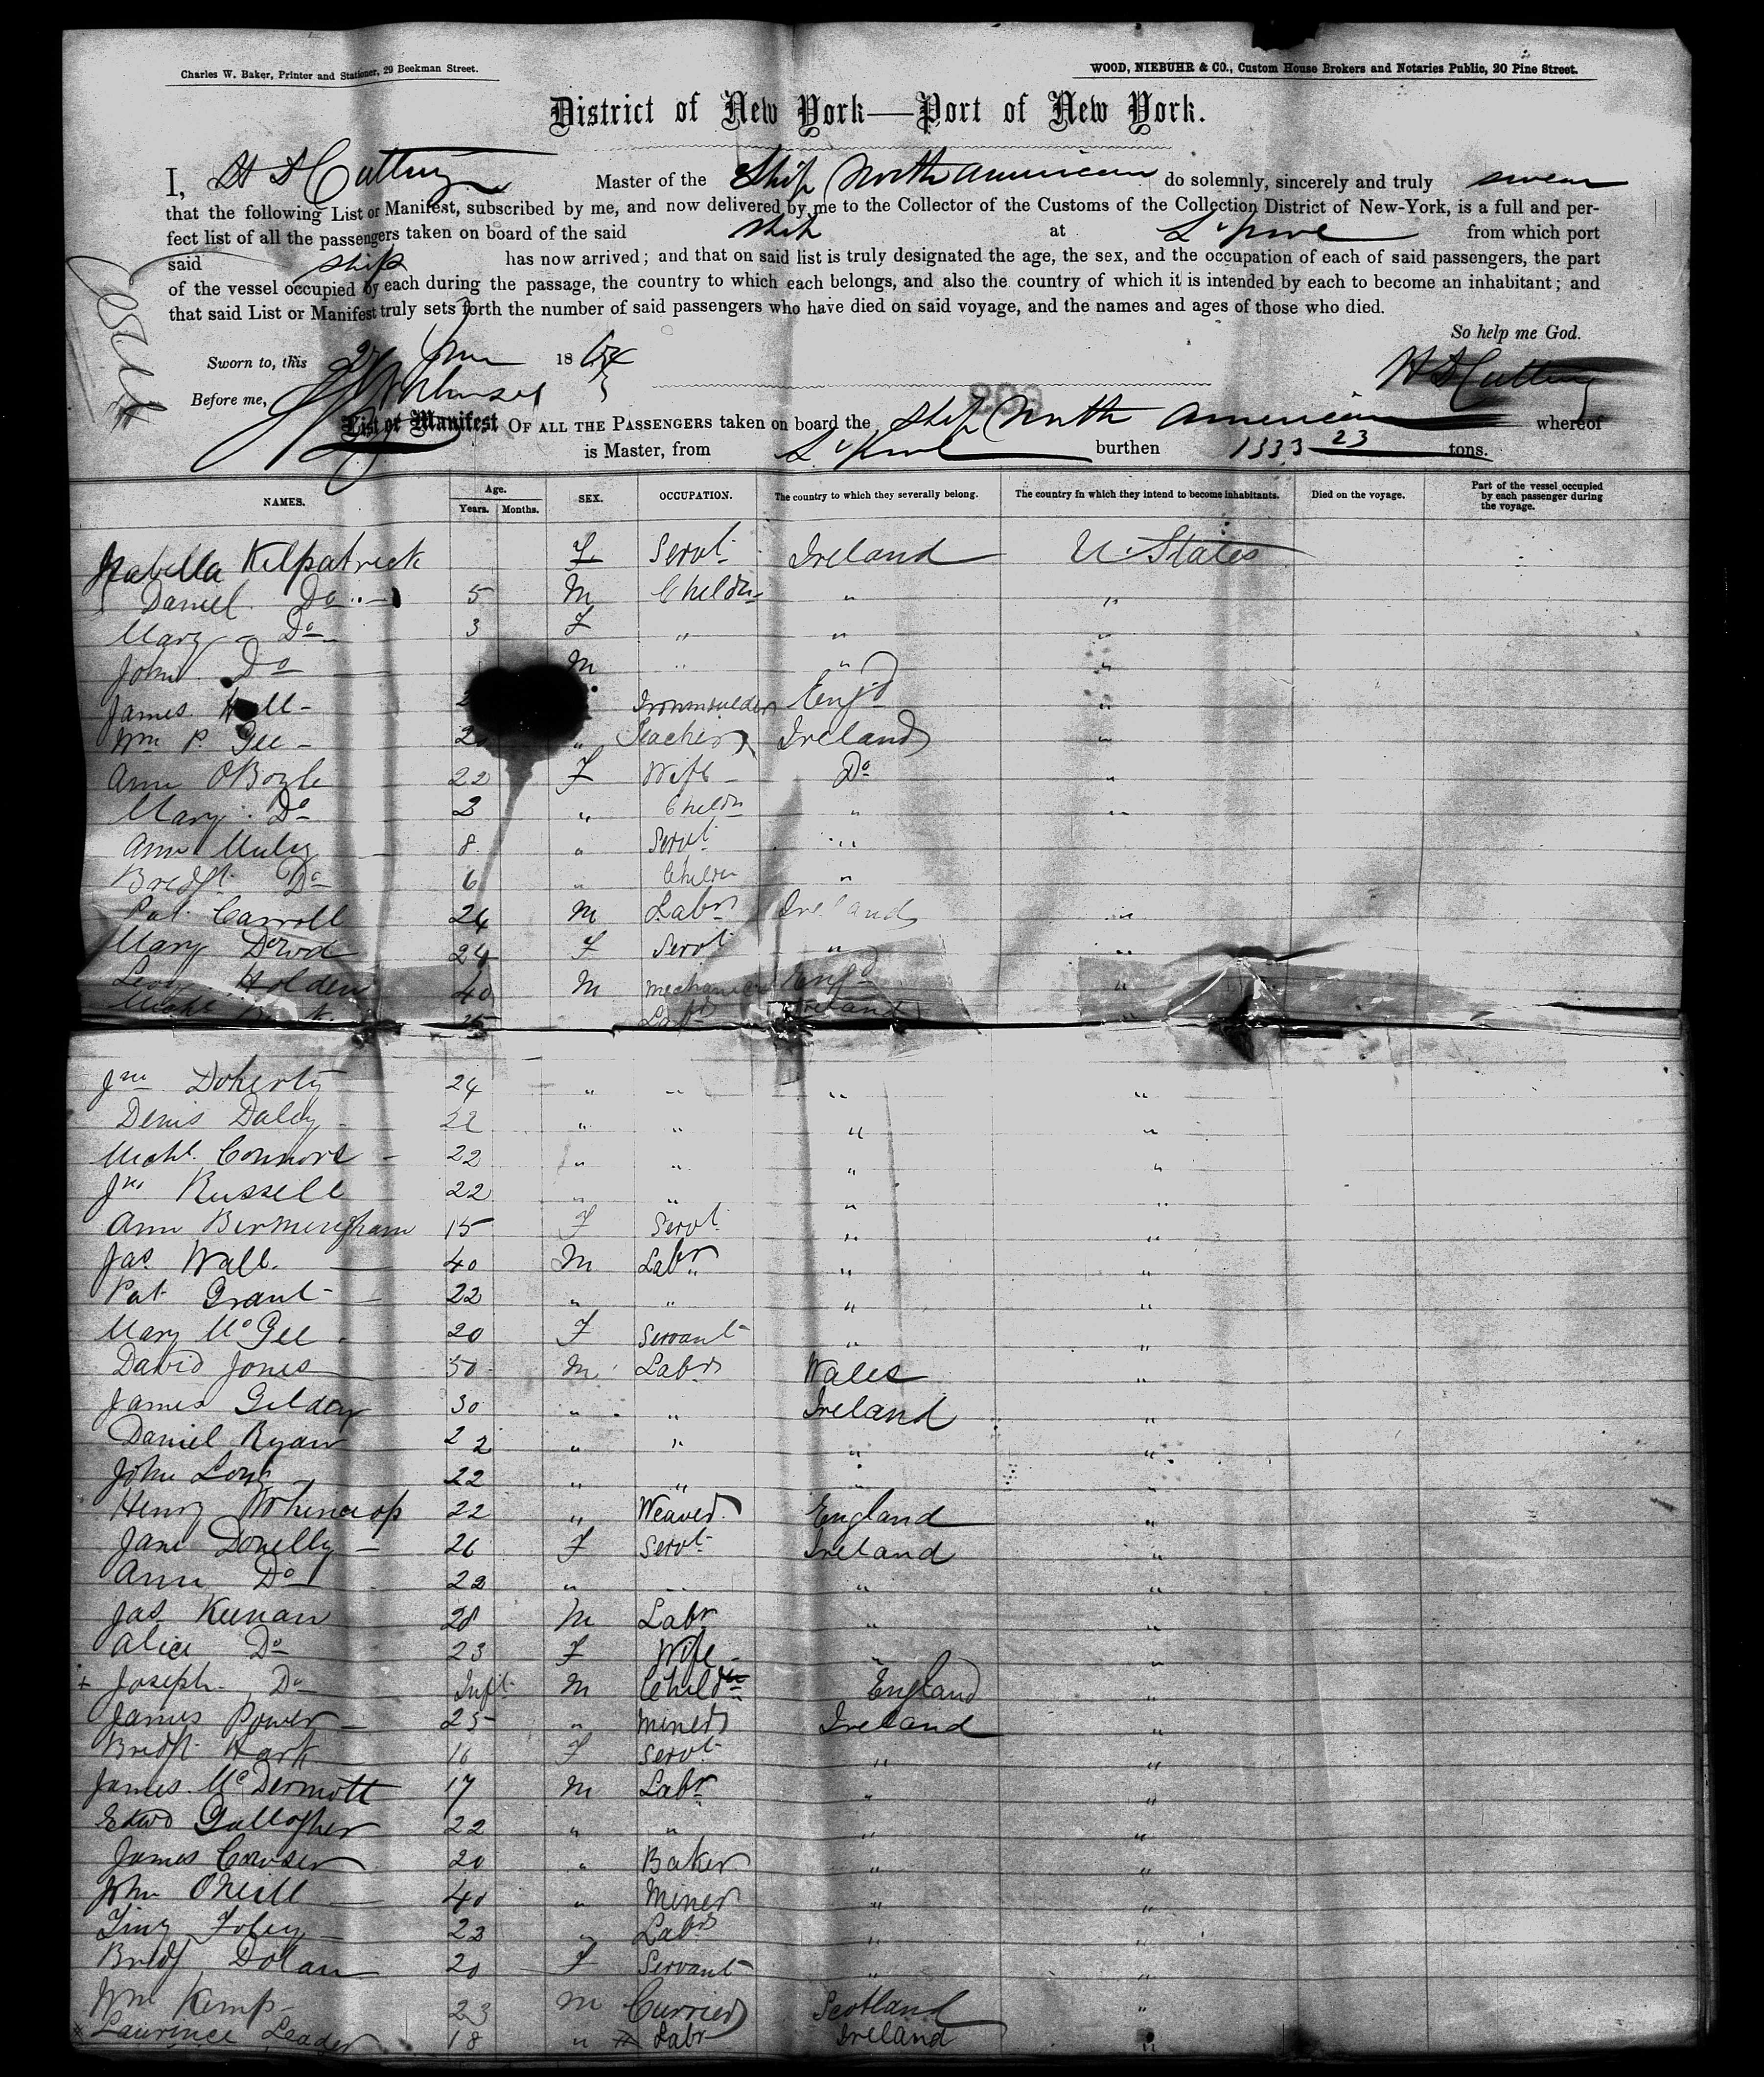 Charles W. Baker, Printer and Stationer, 29 Beekman Street.
WOOD, NIEBUHR & CO., Custom House Brokers and Notaries Public, 20 Pine Street.
District of New York—Port of New York.
I, H S Cutting Master of the Ship North American do solemnly, sincerely and truly swear
that the following List or Manifest, subscribed by me, and now delivered by me to the Collector of the Customs of the Collection District of New-York, is a full and per-
fect list of all the passengers taken on board of the said ship at L'pool from which port
said ship has now arrived; and that on said list is truly designated the age, the sex, and the occupation of each of said passengers, the part
of the vessel occupied by each during the passage, the country to which each belongs, and also the country of which it is intended by each to become an inhabitant; and
that said List or Manifest truly sets forth the number of said passengers who have died on said voyage, and the names and ages of those who died.
So help me God.
Sworn to, this 27 June 1864
H S Cutting
Before me,
List or Manifest OF ALL THE PASSENGERS taken on board the Ship North American whereof
is Master, from L'pool burthen 1333 23 tons.
NAMES. Age. Years. Months. SEX. OCCUPATION. The country to which they severally belong. The country in which they intend to become inhabitants. Died on the voyage. Part of the vessel occupied by each passenger during the voyage.
Isabella Kilpatrick F Servt Ireland U. States
Daniel Do 5 M Childn " "
Mary Do 3 F " " "
John Do M " " "
James Hall Ironmoulder Engd "
Wm P. Gee " Teacher Ireland "
Ann O'Boyle 22 F Wife Do "
Mary Do 2 " Childn " "
Ann 8 " Servt "
Bredgt Do 6 " Childn "
Pat Carroll 24 M Labr Ireland "
Mary 24 F Servt " "
Holden 40 M mechanic Engd "
Michl 25 Labr Ireland "
Jno Doherty 24 " " " "
Denis Daley 22 " " " "
Michl Connors 22 " " " "
Jno Russell 22 " " " "
Ann Birmingham 15 F Servt " "
Jas Wall 40 M Labr " "
Pat Grant 22 " " " "
Mary McGee 20 F Servant " "
David Jones 50 M Labr Wales "
James Gilday 30 " " Ireland "
Daniel Ryan 22 " " " "
John Long 22 " " " "
Henry Whincop 22 " Weaver England "
Jane Donelly 26 F Servt Ireland "
Ann Do 22 " " " "
Jas Keenan 28 M Labr " "
Alice Do 23 F Wife " "
+ Joseph Do Inft M Child England "
James Power 25 " Miner Ireland "
Bredgt Hart 16 F Servt " "
James McDermott 17 M Labr " "
Edwd Gallogher 22 " " " "
James Cowser 20 " Baker " "
John O'Neill 40 " Miner " "
Timy Foley 22 " Labr " "
Bredg Dolan 20 F Servant " "
Wm Kemp 23 M Currier Scotland "
Laurence Leader 18 " Labr Ireland "